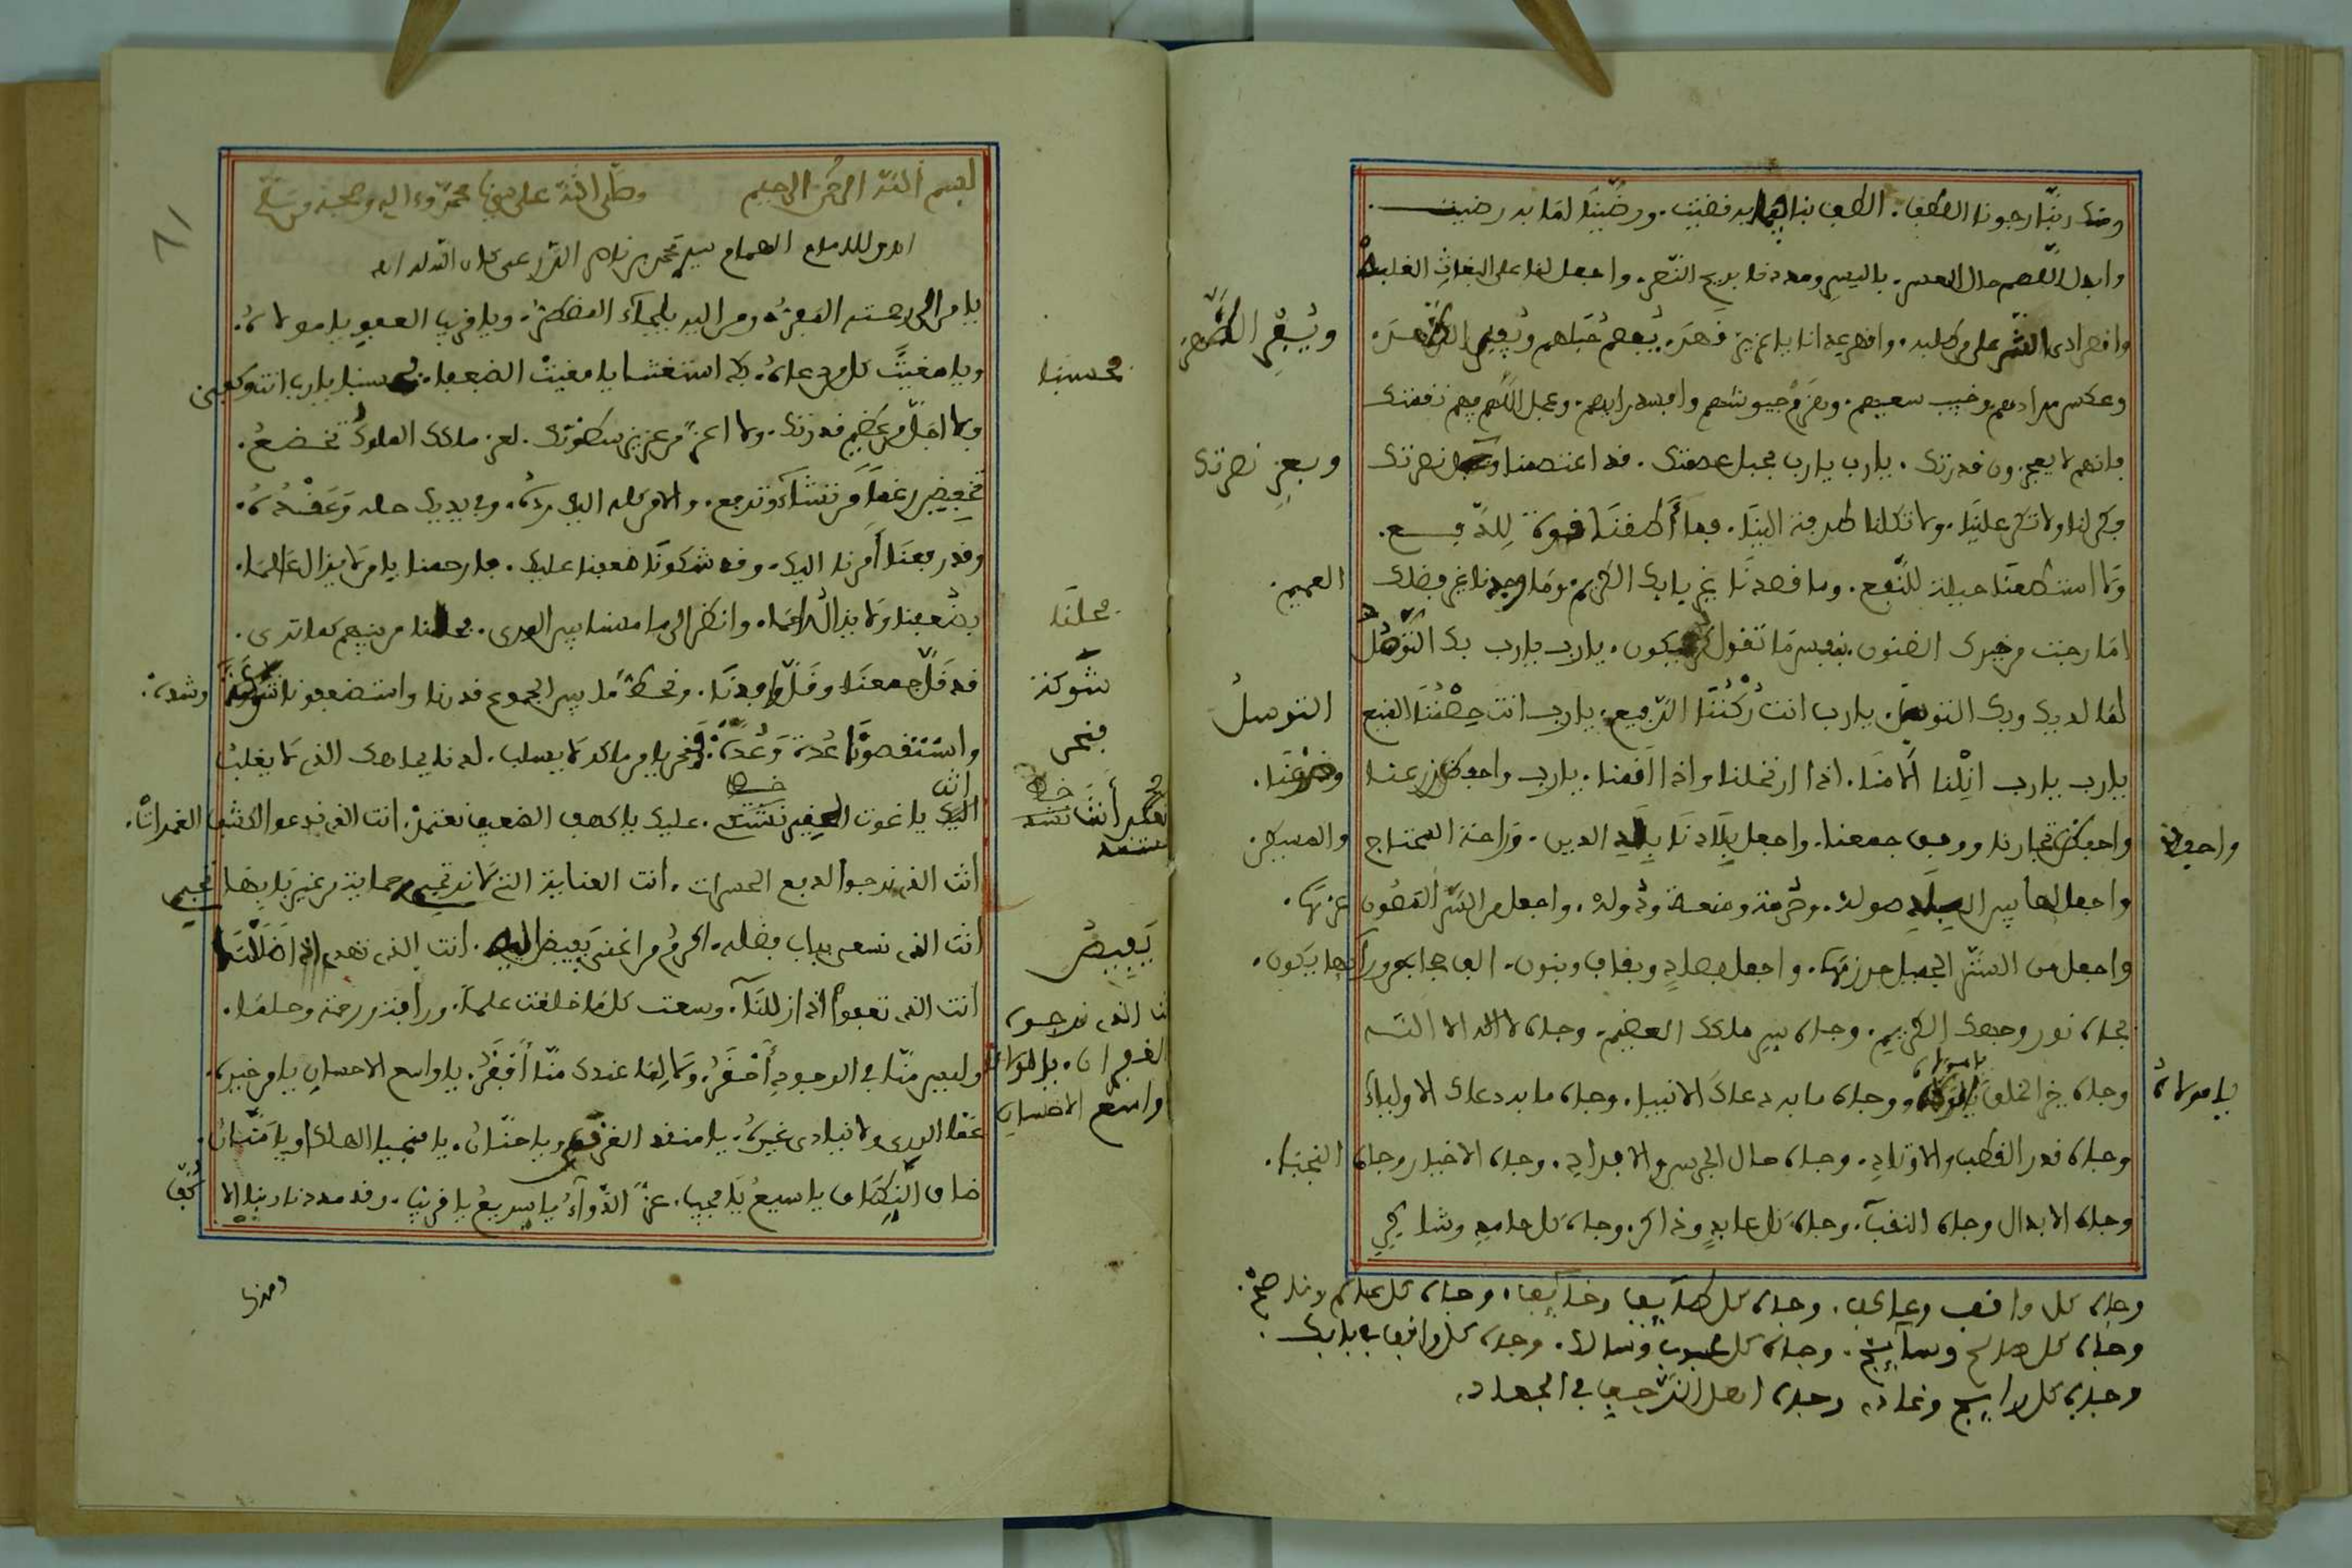 ومنك ربنا رجونا اللطف. الطف بنا فيما به قضيت. ورضينا لما به رضيت
وابدل اللهم حال العسر. باليسر ومددنا بريح النصر. واجعل لنا على البغاث الغلبه
واقهر اذى الشر على من طلبه. واقهر عدانا يا عزيز قهر. يفصم حبلهم ويفصم الظهر
ويفر الظهر
واعكس مرادهم وخيب سعيهم. واهزم جيوشهم وافسد رايهم. وعجل اللهم فيهم نقمتك
فانهم لا يعجزون قدرتك. يارب يارب بحبل عصمتك. قد اعتصمنا وبعز نصرتك
وبعز نصرتك
فكن لنا ولا تكن علينا. ولا تكلنا طرفة الينا. فما اطقنا قوة للدفع.
ولا استطعنا حيلة للنفع. وما قصدنا غير بابك الكريم. وما وجدنا غير فضلك العميم.
فما رجت من خيرك الظنون. بنفس ما تقول كن يكون. يارب يارب بك التوصل
لما لديك وبك التوسل. يارب انت ركننا الرفيع. يارب انت حصننا المنيع
التوسل
يارب يارب انلنا الامنا. اذا ارتحلنا واذا اقمنا. يارب واحفظ زرعنا وضرعنا.
واحفظ تجارنا ووفر جمعنا. واجعل بلادنا بلاد الدين. وراحة المحتاج والمسكين.
واجعل لها بين البلاد صوله. وحرمة ومنعة ودوله. واجعل من السر المصون عزها.
واجعل من الستر الجميل حرزها. واجعل بصاد وبقاف وبنون. الف حجاب من ورائها يكون.
بجاه نور وجهك الكريم. وجاه سر ملكك العظيم. وجاه لا اله الا الله
وجاه خير الخلق يا مولاه. وجاه ما به دعاك الانبيا. وجاه ما به دعاك الاوليا
يا مولاه
وجاه قدر القطب والاوتاد. وجاه حال الجرس والافراد. وجاه الاخيار وجاه النجبا.
وجاه الابدال وجاه النقبا. وجاه كل عابد وذاكر. وجاه كل حامد وشاكر
وجاه كل واقف وعاكف. وجاه كل طايف وخايف. وجاه كل عالم وناصح.
وجاه كل صالح وسايح. وجاه كل وسالك. وجاه كل واقف ببابك.
وجاه كل رايح وغاد. وجاه اهل الزحف في الجهاد.
61
بسم الله الرحمن الرحيم وصلى الله على سيدنا محمد وءاله وصحبه وسلم
للامام الهمام سيد محمد بن ناصر الدرعي
يا من الى رحمته المفر. ومن اليه يلجأ المضطر. ويا قريب العفو يا مولاه.
ويا مغيث كل من دعاه. بك استغثنا يا مغيث الضعفا. فحسبنا يارب انت وكفى
فحسبنا
ولا اجل من عظيم قدرتك. ولا اعز من عزيز سطوتك. لعز ملكك الملوك تخضع.
تخفض رغما من تشاء وترفع. والامر كله اليك رده. وبيديك حله وعقده.
وقد رفعنا امرنا اليك. وقد شكونا ضعفنا عليك. فارحمنا يا من لا يزال عالما.
بضعفنا ولا يزال راحما. وانظر الى ما مسنا من الورى. فحالنا من بينهم كما ترى.
فحالنا
قد قل جمعنا وقل وفرنا. وانحط ما بين الجموع قدرنا. واستضعفونا شوكة وشده.
شوكة
واستنقصونا عدة وعده. فنحن يا من ملكه لا يسلب. لذنا بجاهك الذي لا يغلب
فنحن
اليك يا غوث الفقير نستند. عليك يا كهف الضعيف نعتمد. انت الذي ندعو لكشف الغمرات.
انت الذي نرجو لدفع الحسرات. انت العناية التي لا نرتجي حماية من غير بابها تجي
انت الذي نسعى بباب فضله. اكرم من اغنى بفيض نيله. انت الذي تهدي اذا ضللنا
بفيض
انت الذي تعفو اذا زللنا. وسعت كل ما خلقت علما. ورافة ورحمة وحلما.
وليس منا في الوجود احقر. ولا لما عندك منا افقر. يا واسع الاحسان يا من خيره.
واسع الاحسان
عم الورى ولا ينادى غيره. يا منقذ الغرقى ويا حنان. يا منجي الهلكى ويا منان.
ضاق النطاق يا سميع يا مجيب. عز الدواء يا سريع يا قريب. وقد مددنا ربنا الاكف
ومنك